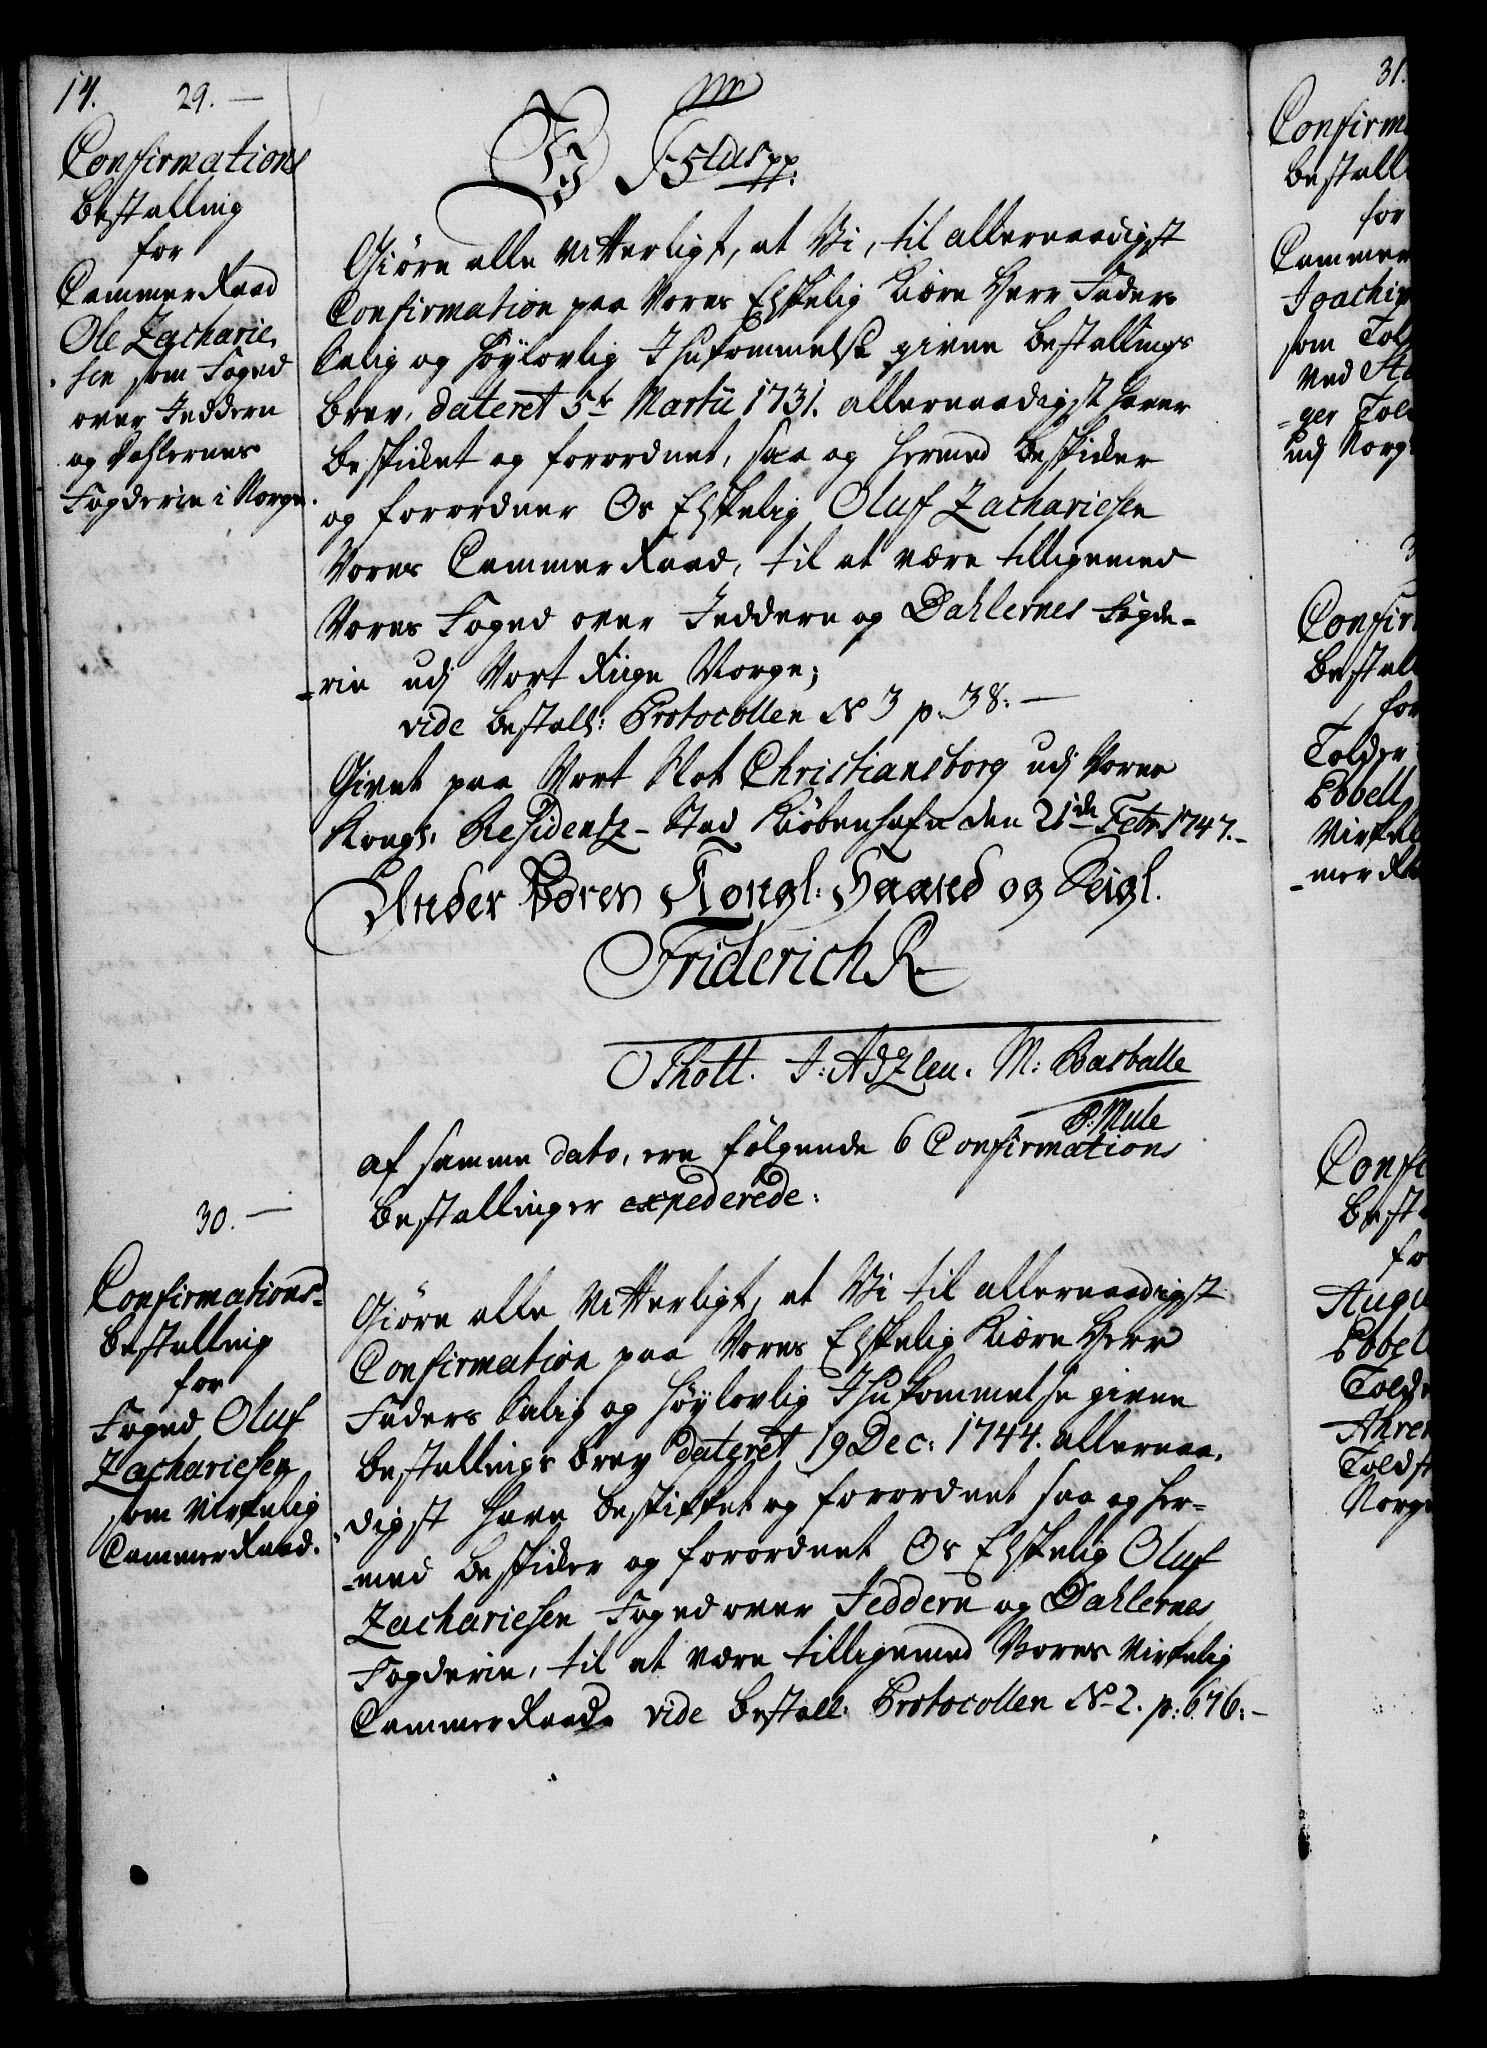 14. 29. —
Confirmations
Bestalling
for
Cammer Raad
Ole Zacharie,
sen som Foged
over Jeddern
og Dahlernes
Fogderie i Norge.
Giøre alle Vitterligt, at Vi, til allernaadigst
Confirmation paa Vores Elskelig Kiære Herr Faders
Salig og Høylovlig Ihukommelse givne Bestallings
Brev, dateret 5te Martii 1731. allernaadigst haver
beskikket og forordnet, saa og hermed beskikker
og forordner Os Elskelig Oluf Zachariesen
Vores Cammer Raad, til at være tilligemed
Vores Foged over Jeddern og Dahlernes Fogde-
-rie udj Vort Riige Norge;
vide Bestall: Protocollen No 3 p. 38: —
Givet paa Vort Slot Christiansborg udj Vores
Kongl: Residentz-Stad Kiøbenhafn den 21de Febr. 1747. –
Under Vores Kongl: Haand og Seigl.
Friderich R
O Thott. J: M: Basballe
P: Mule
af samme dato, ere følgende 6 Confirmations
Bestallinger expederede:
30. —
Confirmations-
Bestalling
for
Foged Oluf
Zachariesen
som Virkelig
Cammer Raad.
Giøre alle Vitterligt, at Vi til allernaadigst
Confirmation paa Vores Elskelig Kiære Herr
Faders Salig og Høylovlig Ihukommelse givne
Bestallings Brev dateret 19 Dec: 1744. allernaa,
digst have beskikket og forordnet saa og her-
-med beskikker og forordnet Os Elskelig Oluf
Zachariesen Foged over Jeddern og Dahlernes
Fogderie, til at være tilligemed Vores Virkelig
Cammer Raad. vide Bestall: Protocollen No 2. p: 676: –
31.
Confirm
Bestall
for
Cammer
Joachim
som Tol
ved Sta
-ger Tol
udj Norg
Confir
Bestal
for
Tolder
Ebbell
Virkel
-mer Ra
Conf
Best
fo
Augu
Ebbel
Tolde
Ahren
Toldst
Norge